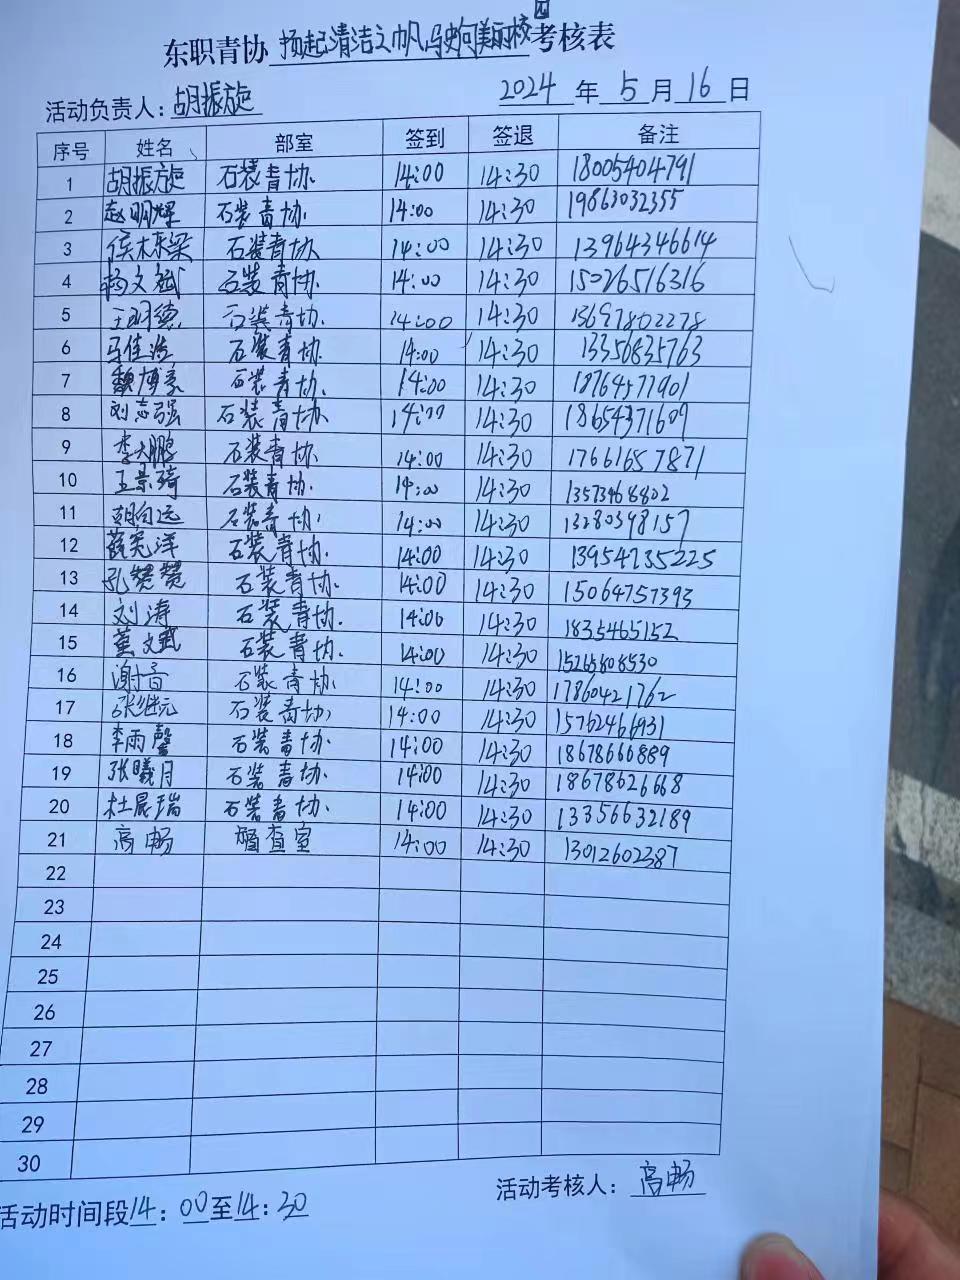 东职青协 扬起清洁之帆 驶向美丽校园 考核表
活动负责人：胡振旋 2024 年 5 月 16 日
序号 姓名 部室 签到 签退 备注
1 胡振旋 石装青协 14:00 14:30 18005404791
2 赵明辉 石装青协 14:00 14:30 19863032355
3 侯栋梁 石装青协 14:00 14:30 13964346614
4 杨文斌 石装青协 14:00 14:30 15026516316
5 王明德 石装青协 14:00 14:30 13697802278
6 马佳浩 石装青协 14:00 14:30 13356835763
7 魏博豪 石装青协 14:00 14:30 18764577901
8 刘志强 石装青协 14:00 14:30 18654371609
9 李大鹏 石装青协 14:00 14:30 17661657871
10 王景琦 石装青协 14:00 14:30 13573468802
11 胡向远 石装青协 14:00 14:30 13280398157
12 薛宪洋 石装青协 14:00 14:30 13954735225
13 孔赞赞 石装青协 14:00 14:30 15064757393
14 刘涛 石装青协 14:00 14:30 1835465152
15 董文武 石装青协 14:00 14:30 15265808530
16 谢音 石装青协 14:00 14:30 17860421762
17 张继元 石装青协 14:00 14:30 15762466931
18 李雨馨 石装青协 14:00 14:30 18678660889
19 张曦月 石装青协 14:00 14:30 18678626668
20 杜晨瑞 石装青协 14:00 14:30 13356632189
21 高畅 督查室 14:00 14:30 13012602387
22
23
24
25
26
27
28
29
30
活动时间段14：00至14：30 活动考核人：高畅